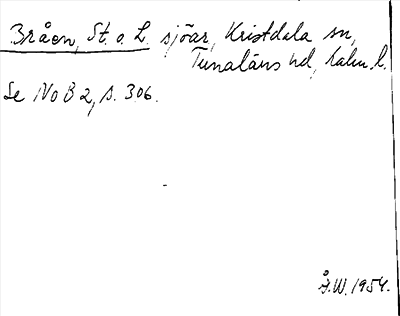 Bråen, St. o. L. sjöar, Kristdala sn,
Tunaläns hd, Kalm. l.
Se NoB 2, s. 306.
Å.W. 1954.